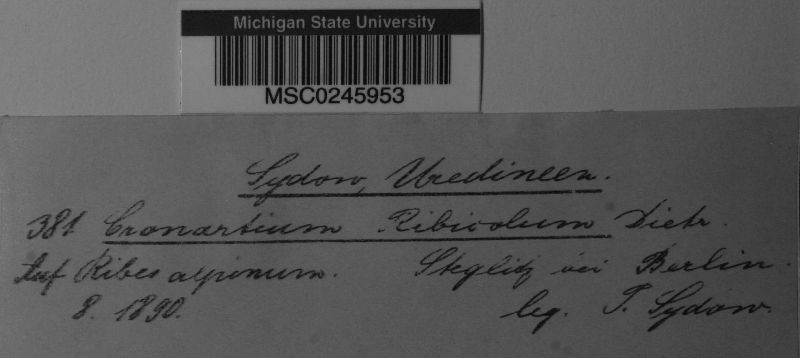 Michigan State University
MSC0245953
Sydow, Uredineen.
381 Cronartium Ribicolum Dietr.
Auf Ribes alpinum. Steglitz bei Berlin.
8. 1890. leg. P. Sydow.